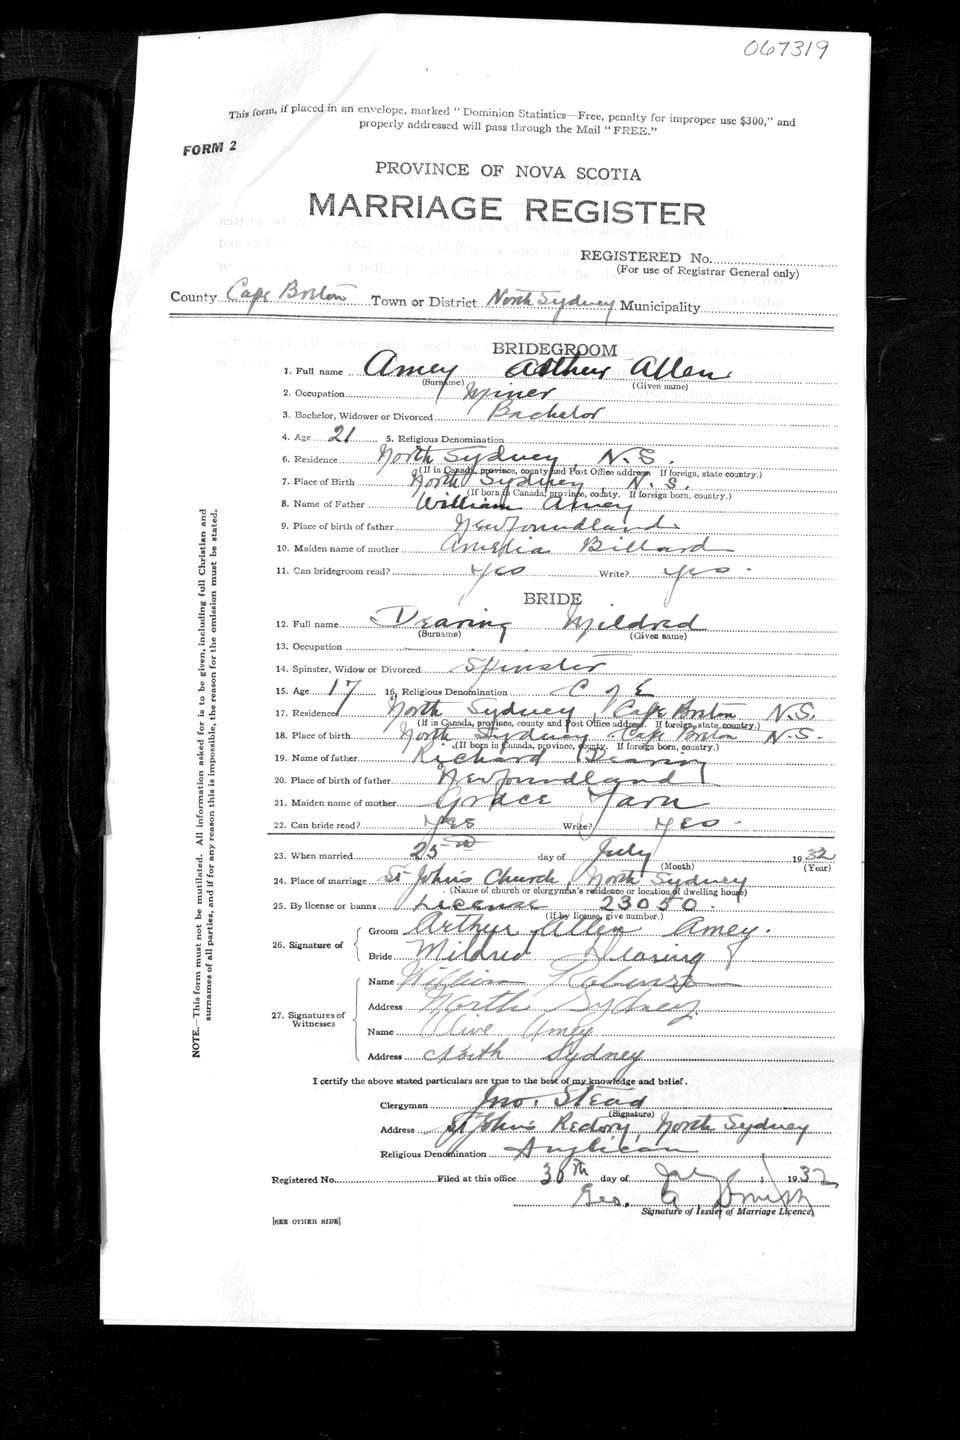 067319
This form, if placed in an envelope, marked "Dominion Statistics—Free, penalty for improper use $300," and
properly addressed will pass through the Mail "FREE."
FORM 2
PROVINCE OF NOVA SCOTIA
MARRIAGE REGISTER
REGISTERED No.
(For use of Registrar General only)
County Cape Breton Town or District North Sydney Municipality
BRIDEGROOM
1. Full name Amey Arthur Allen
(Surname) (Given name)
2. Occupation Miner
3. Bachelor, Widower or Divorced Bachelor
4. Age 21 5. Religious Denomination
6. Residence North Sydney, N.S.
(If in Canada, province, county and Post Office address. If foreign, state country.)
7. Place of Birth North Sydney, N.S.
(If born in Canada, province, county. If foreign born, country.)
8. Name of Father William Amey
9. Place of birth of father Newfoundland
10. Maiden name of mother Amelia Billard
11. Can bridegroom read? Yes Write? Yes.
BRIDE
12. Full name Dearing Mildred
(Surname) (Given name)
13. Occupation
14. Spinster, Widow or Divorced Spinster
15. Age 17 16. Religious Denomination C of E
17. Residence North Sydney, Cape Breton N.S.
(If in Canada, province, county and Post Office address. If foreign, state country.)
18. Place of birth North Sydney Cape Breton N.S.
(If born in Canada, province, county. If foreign born, country.)
19. Name of father Richard Dearing
20. Place of birth of father Newfoundland
21. Maiden name of mother Grace Yarn
22. Can bride read? Yes Write? Yes.
23. When married 25th day of July 1932
(Month) (Year)
24. Place of marriage St John's Church, North Sydney
(Name of church or clergyman's residence or location of dwelling house)
25. By license or banns License 23050.
(If by license, give number.)
26. Signature of Groom Arthur Allen Amey.
Bride Mildred Dearing
27. Signatures of Witnesses Name William
Address North Sydney
Name Olive Amey
Address North Sydney
I certify the above stated particulars are true to the best of my knowledge and belief.
Clergyman Jno. Stead
(Signature)
Address St John's Rectory, North Sydney
Religious Denomination Anglican
Registered No. Filed at this office 30th day of July 1932
Geo. A Smith
Signature of Issuer of Marriage Licence
[SEE OTHER SIDE]
NOTE.—This form must not be mutilated. All information asked for is to be given, including full Christian and
surnames of all parties, and if for any reason this is impossible, the reason for the omission must be stated.